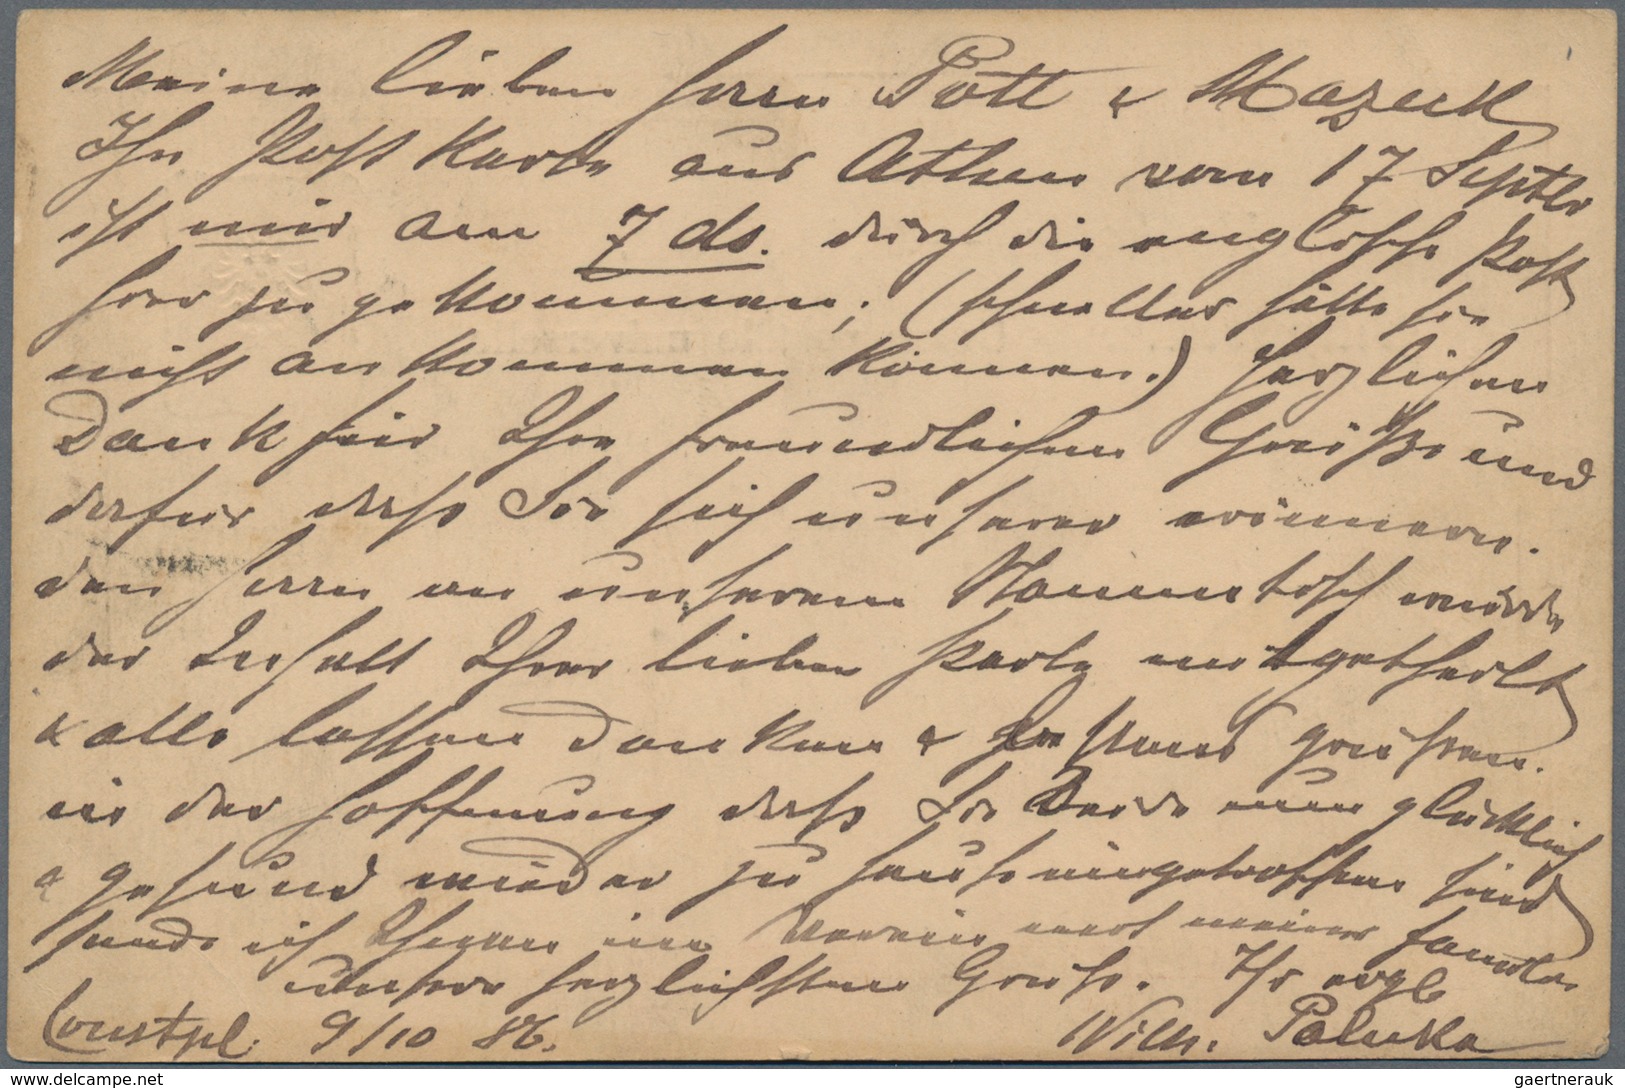 Meine lieben Herrn Pott & Mazeck
Ihre Postkarte aus Athen vom 17 Septbr
ist mir am 7 ds. durch die englische Post
hier zu gekommen; (schneller hätte sie
nicht ankommen können.) Herzlichen
Dank für Ihre freundlichen Grüße und
dafür dass Sie sich unserer erinnern.
den Herrn an unserem Stammtisch wurde
der Inhalt Ihrer lieben Karte mitgetheilt
& alle lassen danken & bestens grüssen.
in der Hoffnung dass Sie Beide nun glücklich
& gesund wieder zu Hause eingetroffen sind
sende ich Ihnen im Verein mit meiner Familie
unsere herzlichsten Grüsse. Ihr ergb
Constpl. 9/10 86. Wilh. Paluka
gaertnerauk